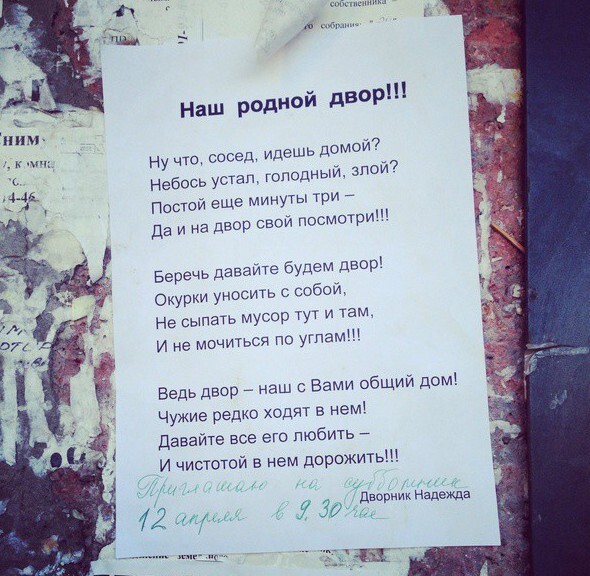 собственника
собрание
Сним
Наш родной двор!!!
Ну что, сосед, идешь домой?
Небось устал, голодный, злой?
Постой еще минуты три –
Да и на двор свой посмотри!!!
Беречь давайте будем двор!
Окурки уносить с собой,
Не сыпать мусор тут и там,
И не мочиться по углам!!!
Ведь двор – наш с Вами общий дом!
Чужие редко ходят в нем!
Давайте все его любить –
И чистотой в нем дорожить!!!
Приглашаю на субботник
Дворник Надежда
12 апреля в 9.30 час